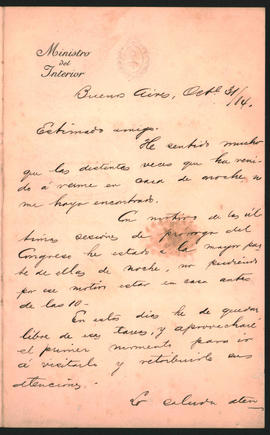 Ministro
del
Interior
Buenos Aires, Octe 31/14.
Estimado amigo.
He sentido mucho
que las distintas veces que ha veni-
do á verme en casa de noche, no
me haya encontrado.
Con motivo de las úl-
timas sesiones de prorroga del
Congreso he estado la mayor par-
te de ellas de noche, no pudiendo
por ese motivo estar en casa antes
de las 10-
En estos dias he de quedar
libre de esa tarea, y aprovecharé
el primer momento para ir
á visitarlo y retribuirle sus
atenciones.
Lo saluda aten